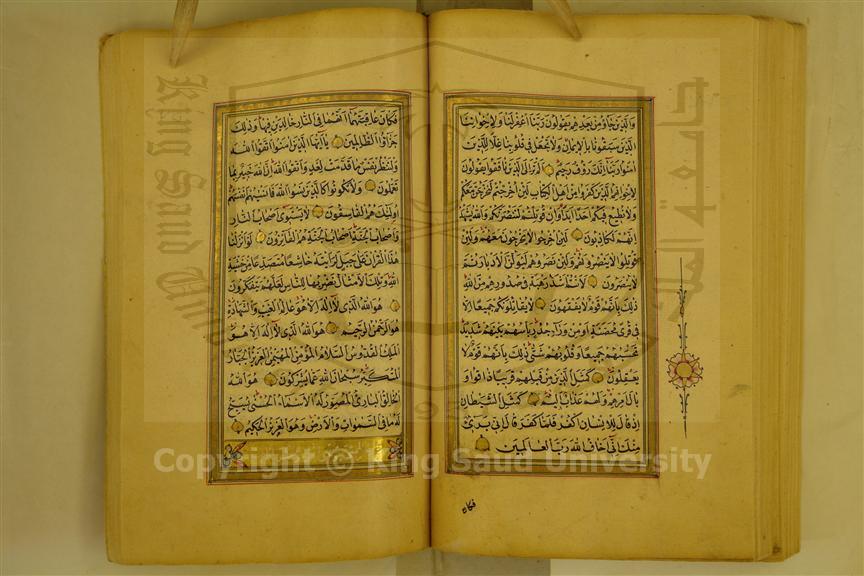 والذين جاؤ من بعدهم يقولون ربنا اغفر لنا ولاخواننا
الذين سبقونا بالايمان ولا تجعل في قلوبنا غلا للذين
امنوا ربنا انك رؤف رحيم الم تر الى الذين نافقوا يقولون
لاخوانهم الذين كفروا من اهل الكتاب لئن اخرجتم لنخرجن معكم
ولا نطيع فيكم احدا ابدا وان قوتلتم لننصرنكم والله يشهد
انهم لكاذبون لئن اخرجوا لا يخرجون معهم ولئن
قوتلوا لا ينصرونهم ولئن نصروهم ليولن الادبار ثم
لا ينصرون لانتم اشد رهبة في صدورهم من الله
ذلك بانهم قوم لا يفقهون لا يقاتلونكم جميعا الا
في قرى محصنة او من وراء جدر باسهم بينهم شديد
تحسبهم جميعا وقلوبهم شتى ذلك بانهم قوم لا
يعقلون كمثل الذين من قبلهم قريبا ذاقوا و
بال امرهم ولهم عذاب اليم كمثل الشيطان
اذ قال للانسان اكفر فلما كفر قال اني برئ
منك اني اخاف الله رب العالمين
فكان
فكان عاقبتهما انهما في النار خالدين فيها وذلك
جزاؤا الظالمين يا ايها الذين امنوا اتقوا الله
ولتنظر نفس ما قدمت لغد واتقوا الله ان الله خبير بما
تعملون ولا تكونوا كالذين نسوا الله فانسيهم انفسهم
اولئك هم الفاسقون لا يستوى اصحاب النار
واصحاب الجنة اصحاب الجنة هم الفائزون لو انزلنا
هذا القران على جبل لرايته خاشعا متصدعا من خشية
الله وتلك الامثال نضربها للناس لعلهم يتفكرون
هو الله الذى لا اله الا هو عالم الغيب والشهادة
هو الرحمن الرحيم هو الله الذى لا اله الا هو
الملك القدوس السلام المؤمن المهيمن العزيز الجبار
المتكبر سبحان الله عما يشركون هو الله
الخالق البارئ المصور له الاسماء الحسنى يسبح
له ما في السموات والارض وهو العزيز الحكيم
King Saud
جامعة الملك
1957
Copyright © King Saud University